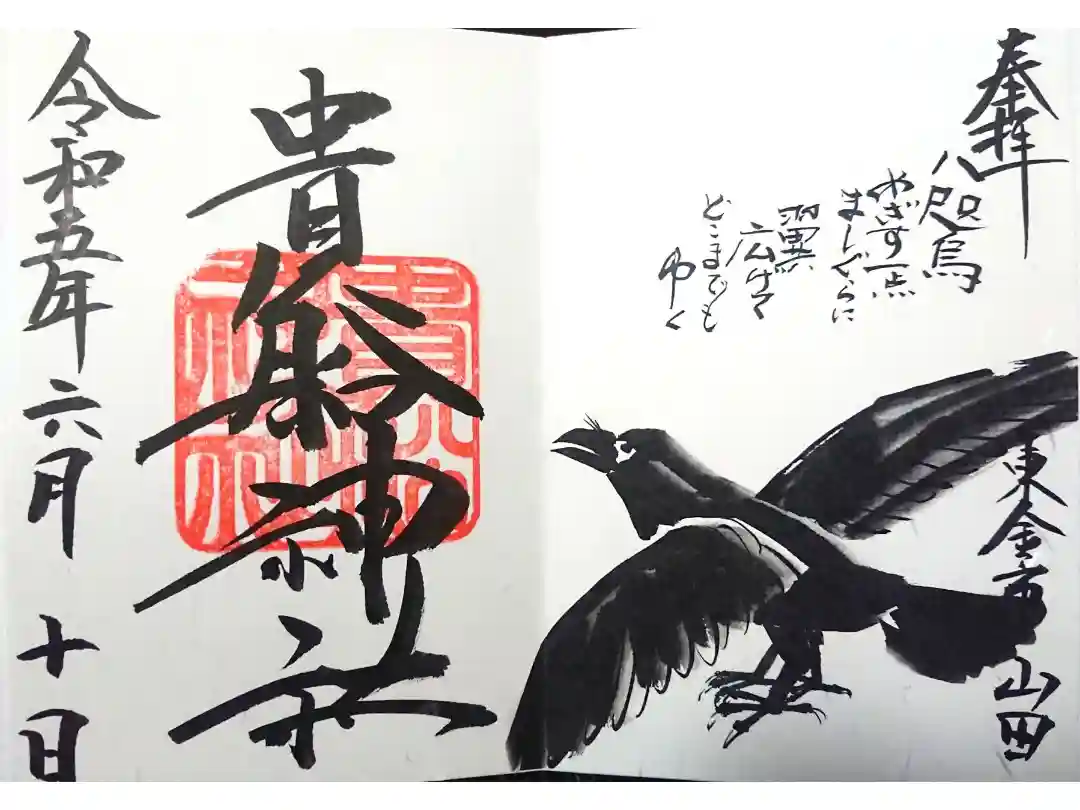 奉拝
八咫烏
めざす一点
ましぐらに
翼
広げて
どこまでも
ゆく
東金市 山田
貴船神社
貴船神社
令和五年 六月 十日